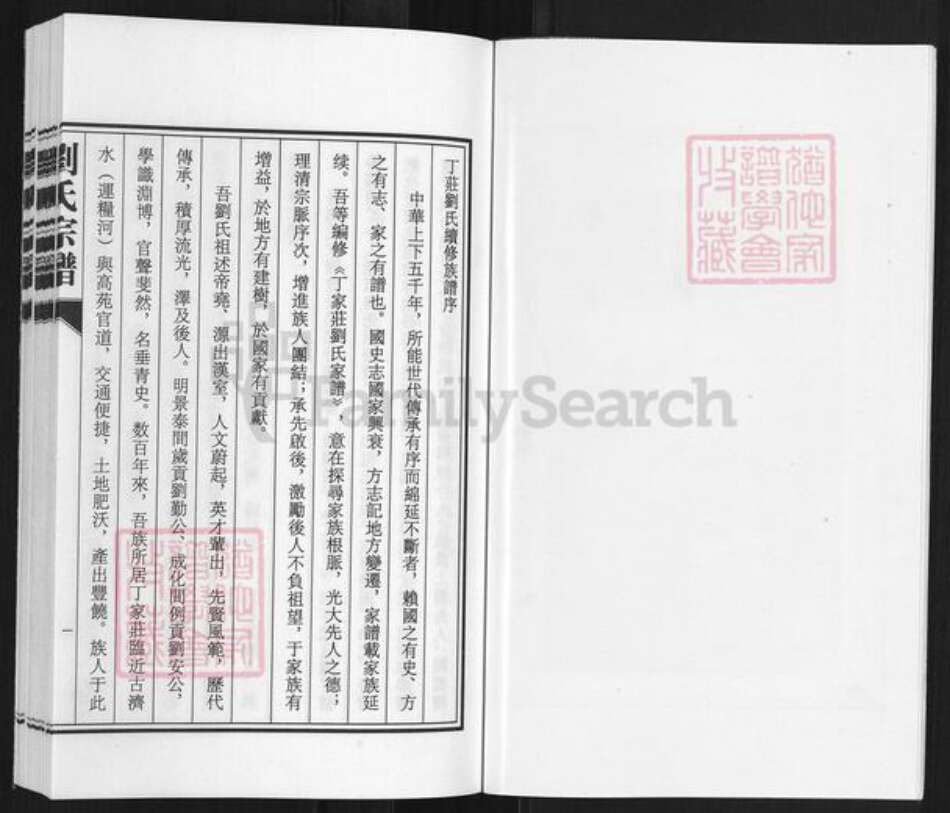 丁莊劉氏續修族譜序
中華上下五千年，所能世代傳承有序而綿延不斷者，賴國之有史、方
之有志、家之有譜也。國史志國家興衰，方志記地方變遷，家譜載家族延
续。吾等编修《丁家莊劉氏家譜》，意在探尋家族根脈，光大先人之德；
理清宗脈序次，增進族人團結；承先啟後，激勵後人不負祖望，于家族有
增益，於地方有建樹，於國家有貢獻。
吾劉氏祖述帝堯、源出漢室，人文蔚起，英才輩出，先賢風範，歷代
傳承，積厚流光，澤及後人。明景泰間歲貢劉勤公、成化間例貢劉安公，
學識淵博，官聲斐然，名垂青史。数百年來，吾族所居丁家莊臨近古濟
水（運糧河）與高苑官道，交通便捷，土地肥沃，產出豐饒。族人于此
劉氏宗譜
一
猶他家
譜學會
收藏
猶他家
譜學會
收藏
FamilySearch